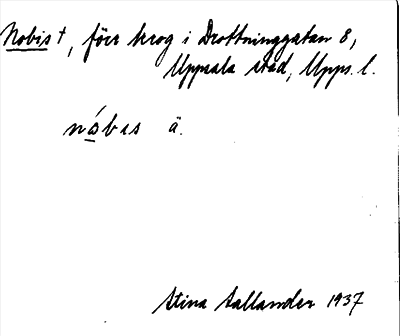 Nobis †, förr krog i Drottninggatan 8,
Uppsala stad, Upps. l.
nóbıs ä.
Stina Sallander 1937